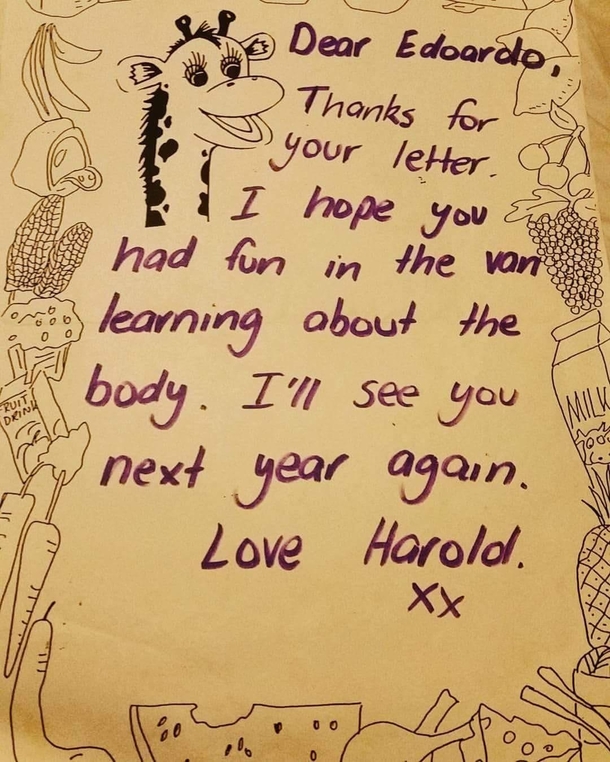 Dear Edoardo,
Thanks for
your letter.
I hope you
had fun in the van
learning about the
body. I'll see you
next year again.
Love Harold.
xx
FRUIT
DRINK
MILK